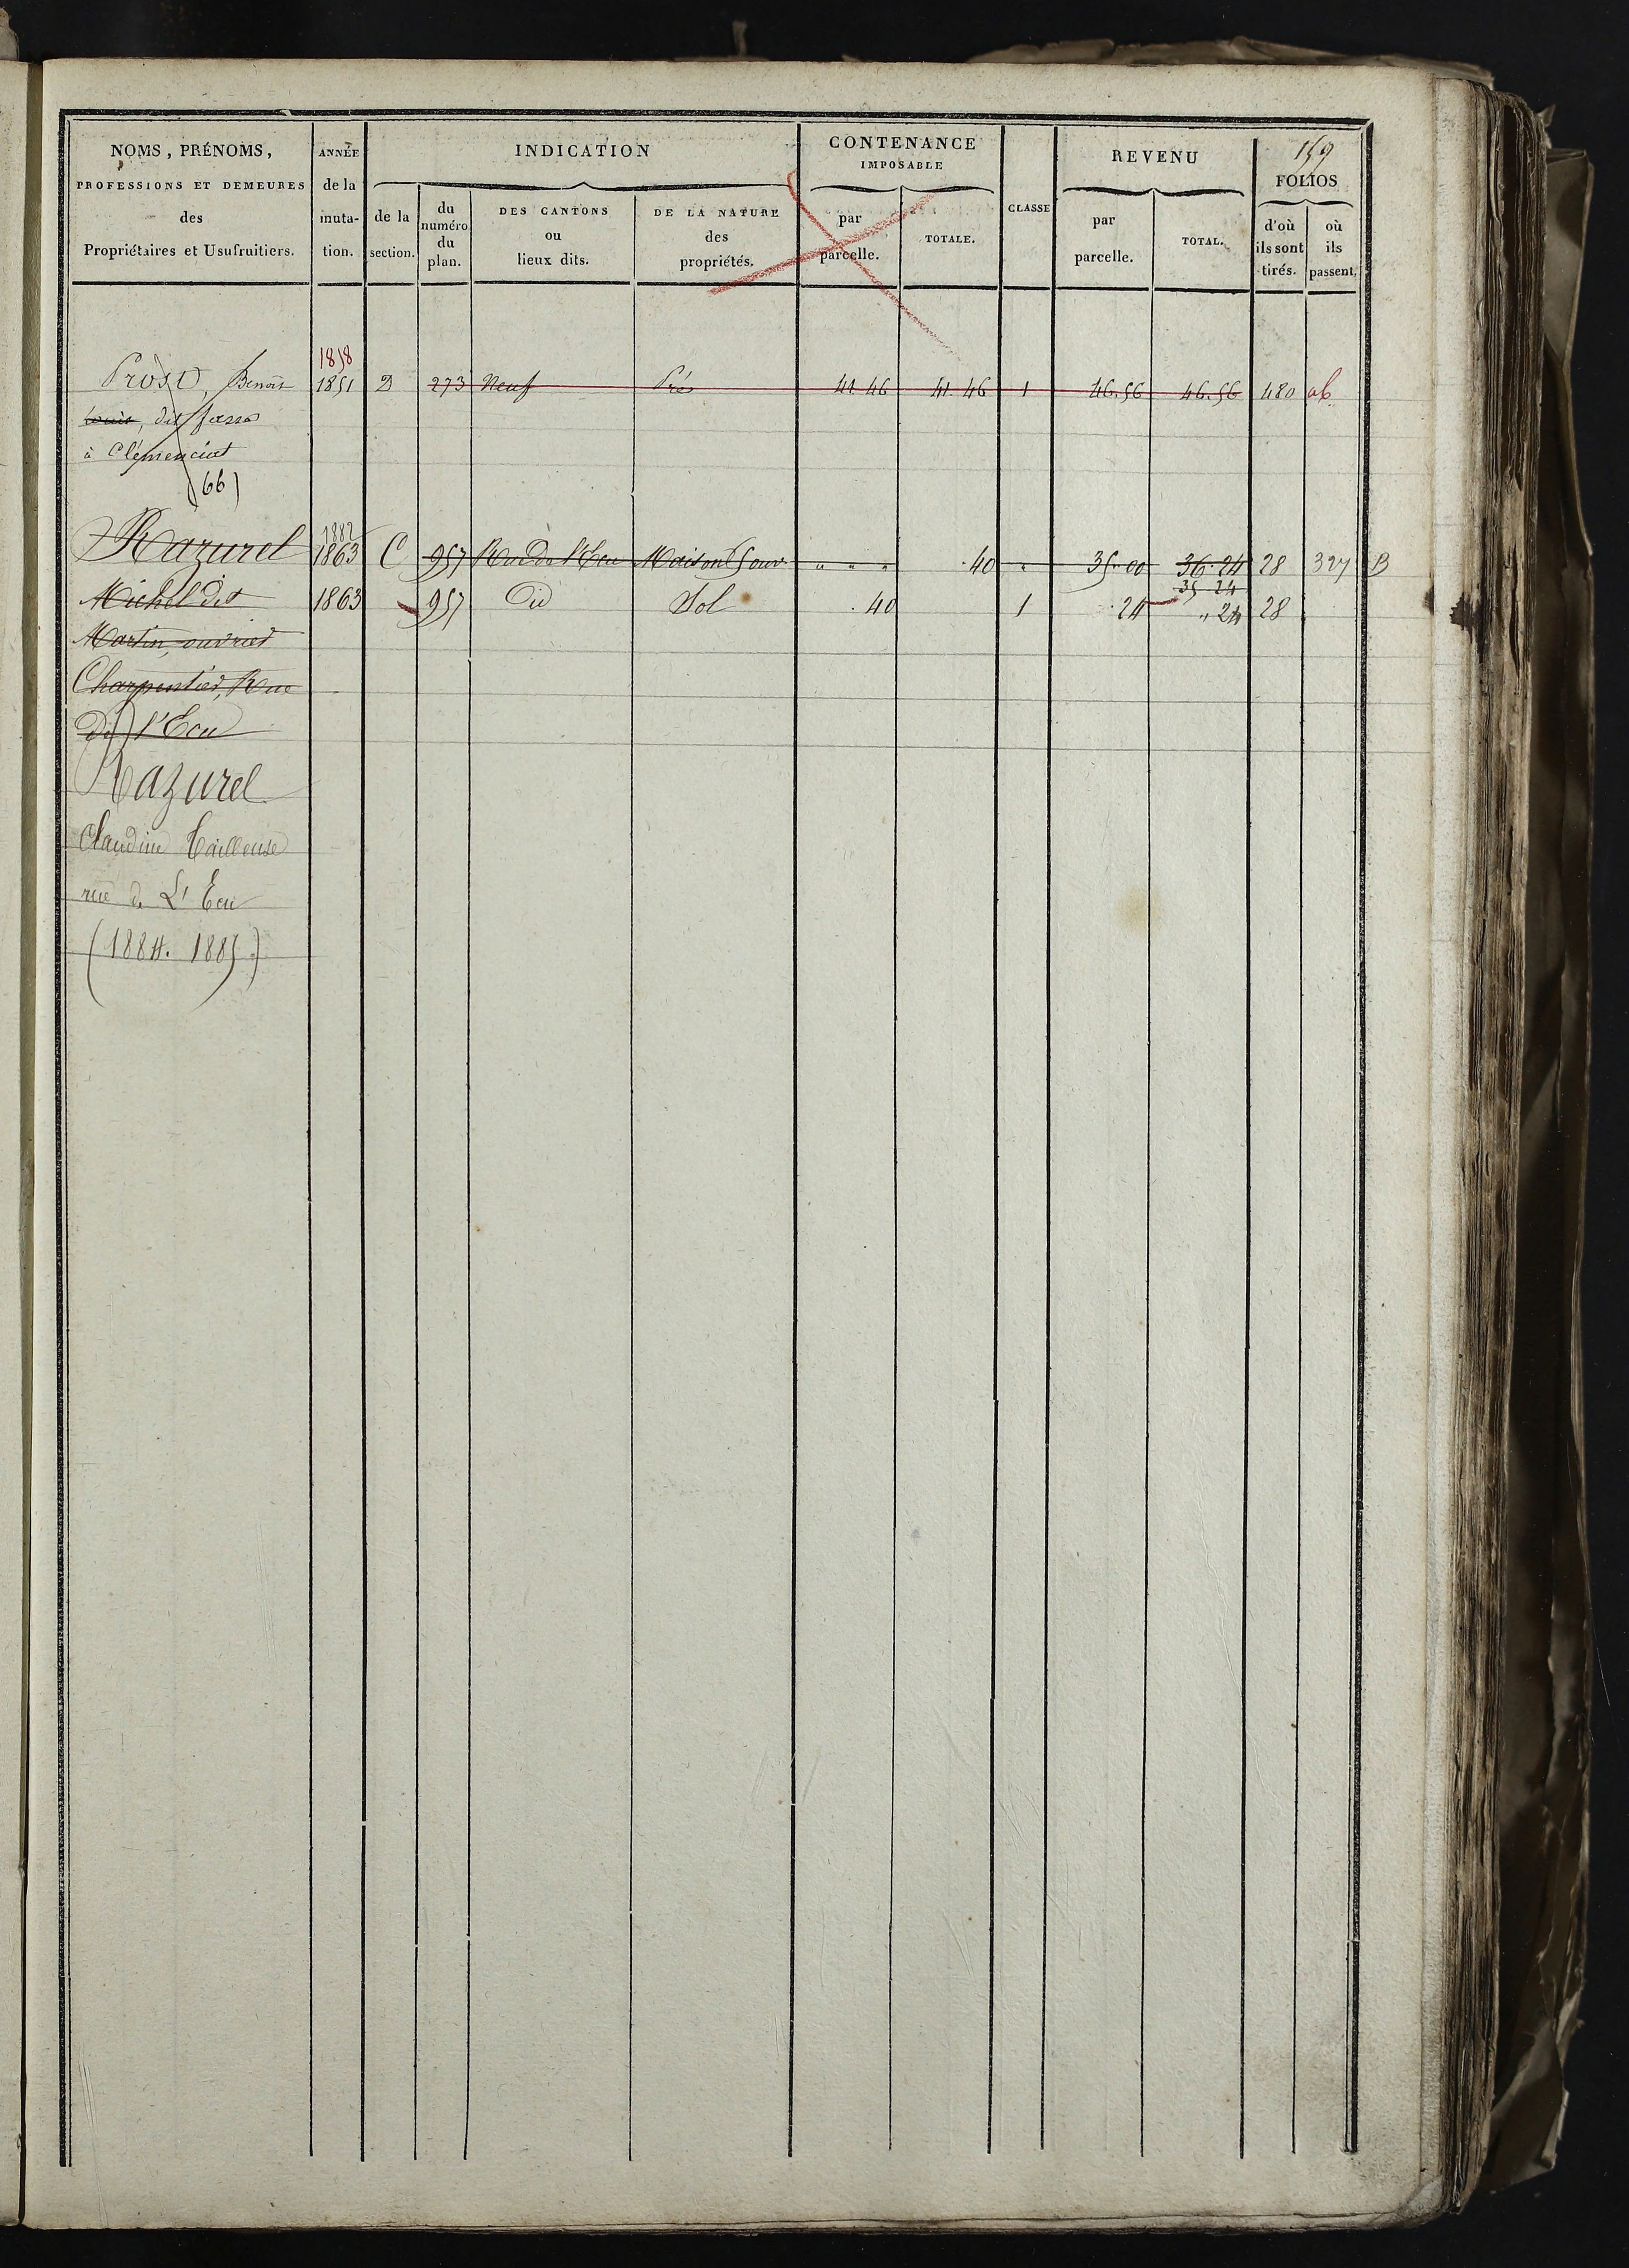 159
NOMS, PRÉNOMS, ANNÉE INDICATION CONTENANCE IMPOSABLE CLASSE REVENU FOLIOS
PROFESSIONS ET DEMEURES des Propriétaires et Usufruitiers. de la muta- tion. de la section. du numéro du plan. DES CANTONS ou lieux dits. DE LA NATURE des propriétés. par parcelle. TOTALE. par parcelle. TOTAL. d'où ils sont tirés. où ils passent.
1858
Prost, Benoit 1851 D 273 Neuf Pré 41.46 41.46 1 46.56 46.56 480 ab
Louis, dit
à Clémenciat
(66)
1882
Razurel 1863 C 957 Rue de l'Ecu Maison 5 ouv. " " " .40 " 35.00 36.24 28 327 B
35 24
Michel dit 1863 957 Did Sol .40 1 .24 " 24 28
Martin, ouvrier
Charpentier, Rue
de l'Ecu
Razurel
Claudine Tailleuse
rue de L'Ecu
(1884. 1885)